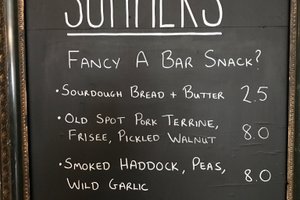 SUMMERS
FANCY A BAR SNACK?
• SOURDOUGH BREAD + BUTTER 2.5
• OLD SPOT PORK TERRINE,
FRISEE, PICKLED WALNUT 8.0
• SMOKED HADDOCK, PEAS,
WILD GARLIC 8.0